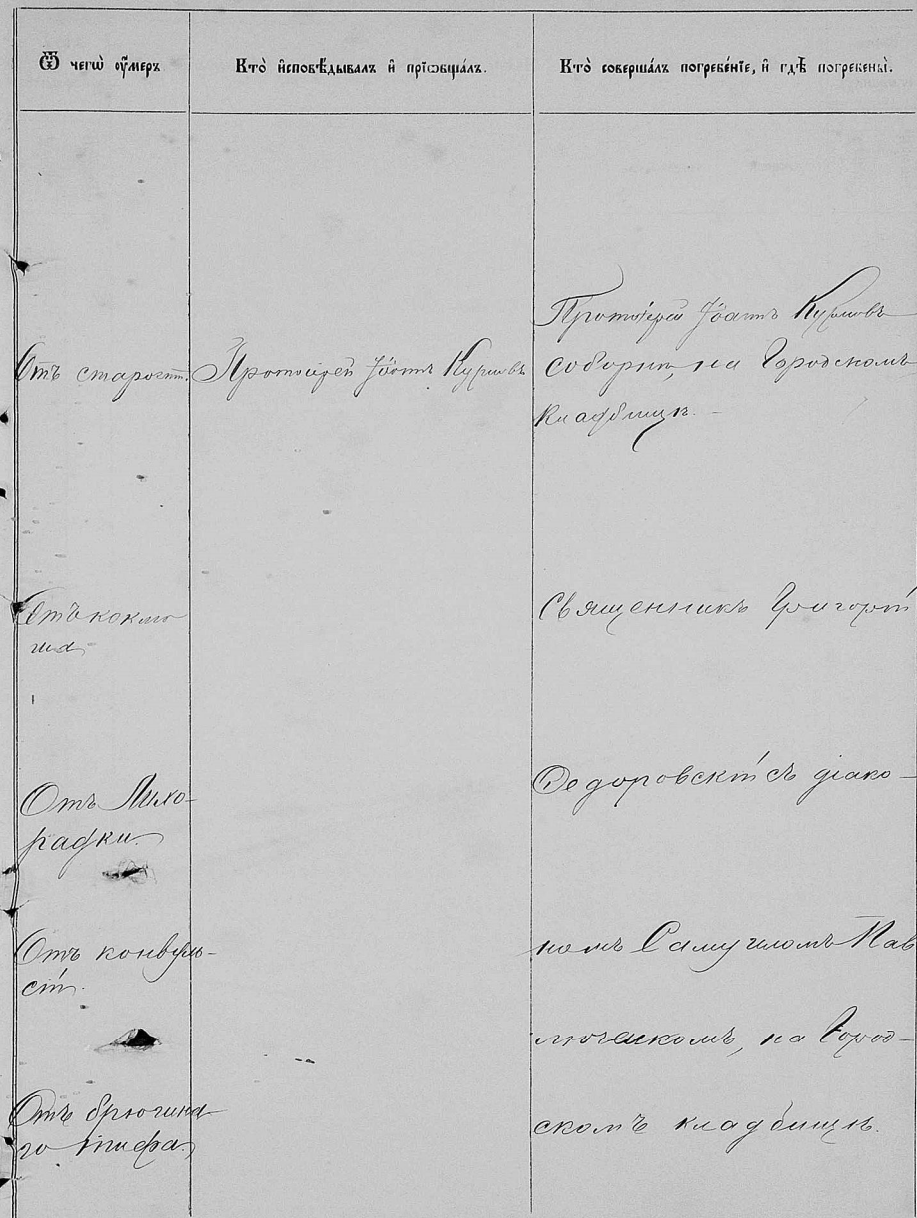 Ѿ чегѡ оу҆́меръ
Кто̀ и҆сповѣ́дывалъ и҆ прїѡбща́лъ.
Кто̀ соверша́лъ погребе́нїе, и҆ гдѣ̀ погребены̀.
Отъ старости.
Протоіерей Іоаннъ Курловъ
Протоіерей Іоаннъ Курловъ
соборнѣ, на Городскомъ
кладбищѣ.
Отъ коклю
ша
Священникъ Григорій
Отъ Лихо-
радки.
Федоровскій съ діако-
Отъ конвуль-
сій.
номъ Самуиломъ Пав
на Город-
Отъ брюшна-
го тифа.
скомъ кладбищѣ.